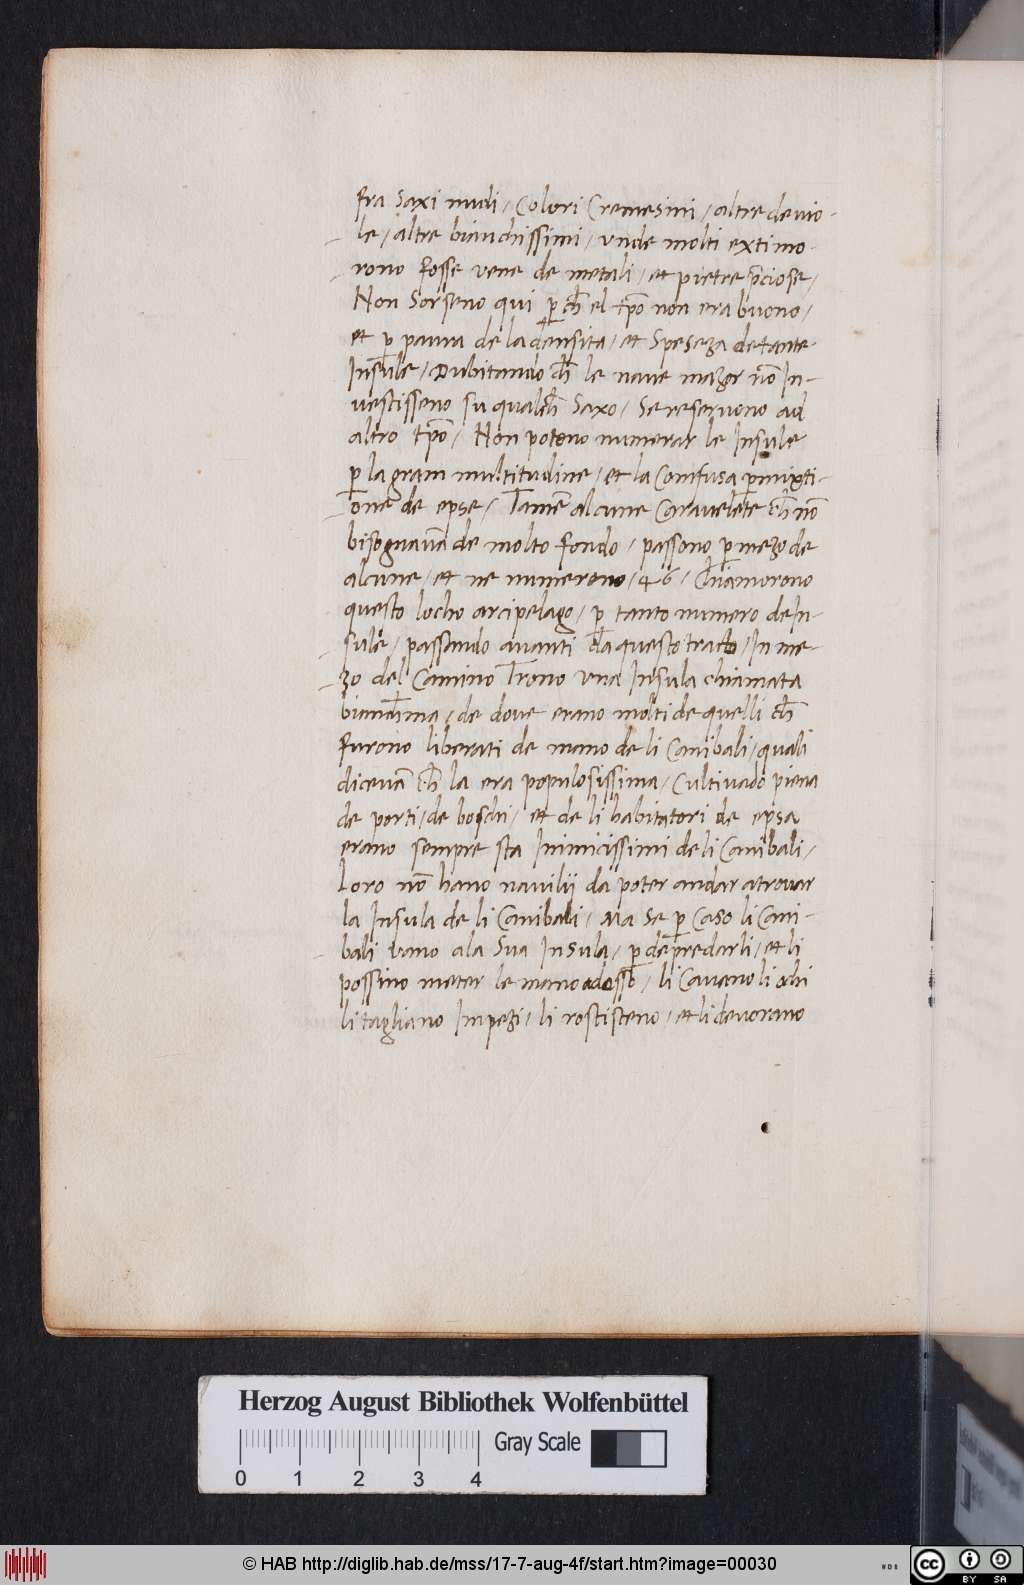 fra Saxi nudi / Colori Cremesini / altre de uio-
le / altre bianchissimi / vnde molti extimo-
rono fosse vene de metali / et pietre p̄ciose /
Non Sorseno qui ꝑ ch̄ el tp̄o non era buono /
et ꝑ paura de la densita / et Speseza de tante
Insule / Dubitando ch̄ le naue mazor nō In-
uestisseno su qualch̄ Saxo / Se reseruono ad
altro tp̄o / Non poteno numerar le Insule
ꝑ la gram multitudine / et la Comfusa ꝑmixti-
one de epse / Tamē alcune Carauelete ch̄ nō
bisognauā de molto fondo / passono ꝑ mezo de
alcune / et ne numerono / 46 / Chiamorono
questo locho arcipelago / ꝑ tanto numero de In-
sule / passando auanti da questo tracto / In me-
zo del Camino Trono vna Insula chiamata
de doue erano molti de quelli ch̄
furono liberati de mano de li Canibali / quali
diceuā ch̄ la era populosissima / Cultiuado piena
de porti / de boschi / et de li habitatori de epsa
erano sempre sta Inimicissimi de li Canibali /
Loro nō hano nauilij da poter andar a trouar
la Insula de li Canibali / Ma Se ꝑ Caso li Cani-
bali vano ala Sua Insula / ꝑ depredarli / et li
possino meter le mano adosso / li Caueno li ochi
li tagliano Impezi / li rostisceno / et li deuorano
Herzog August Bibliothek Wolfenbüttel
Gray Scale
0 1 2 3 4
© HAB http://diglib.hab.de/mss/17-7-aug-4f/start.htm?image=00030
WDB
cc BY SA